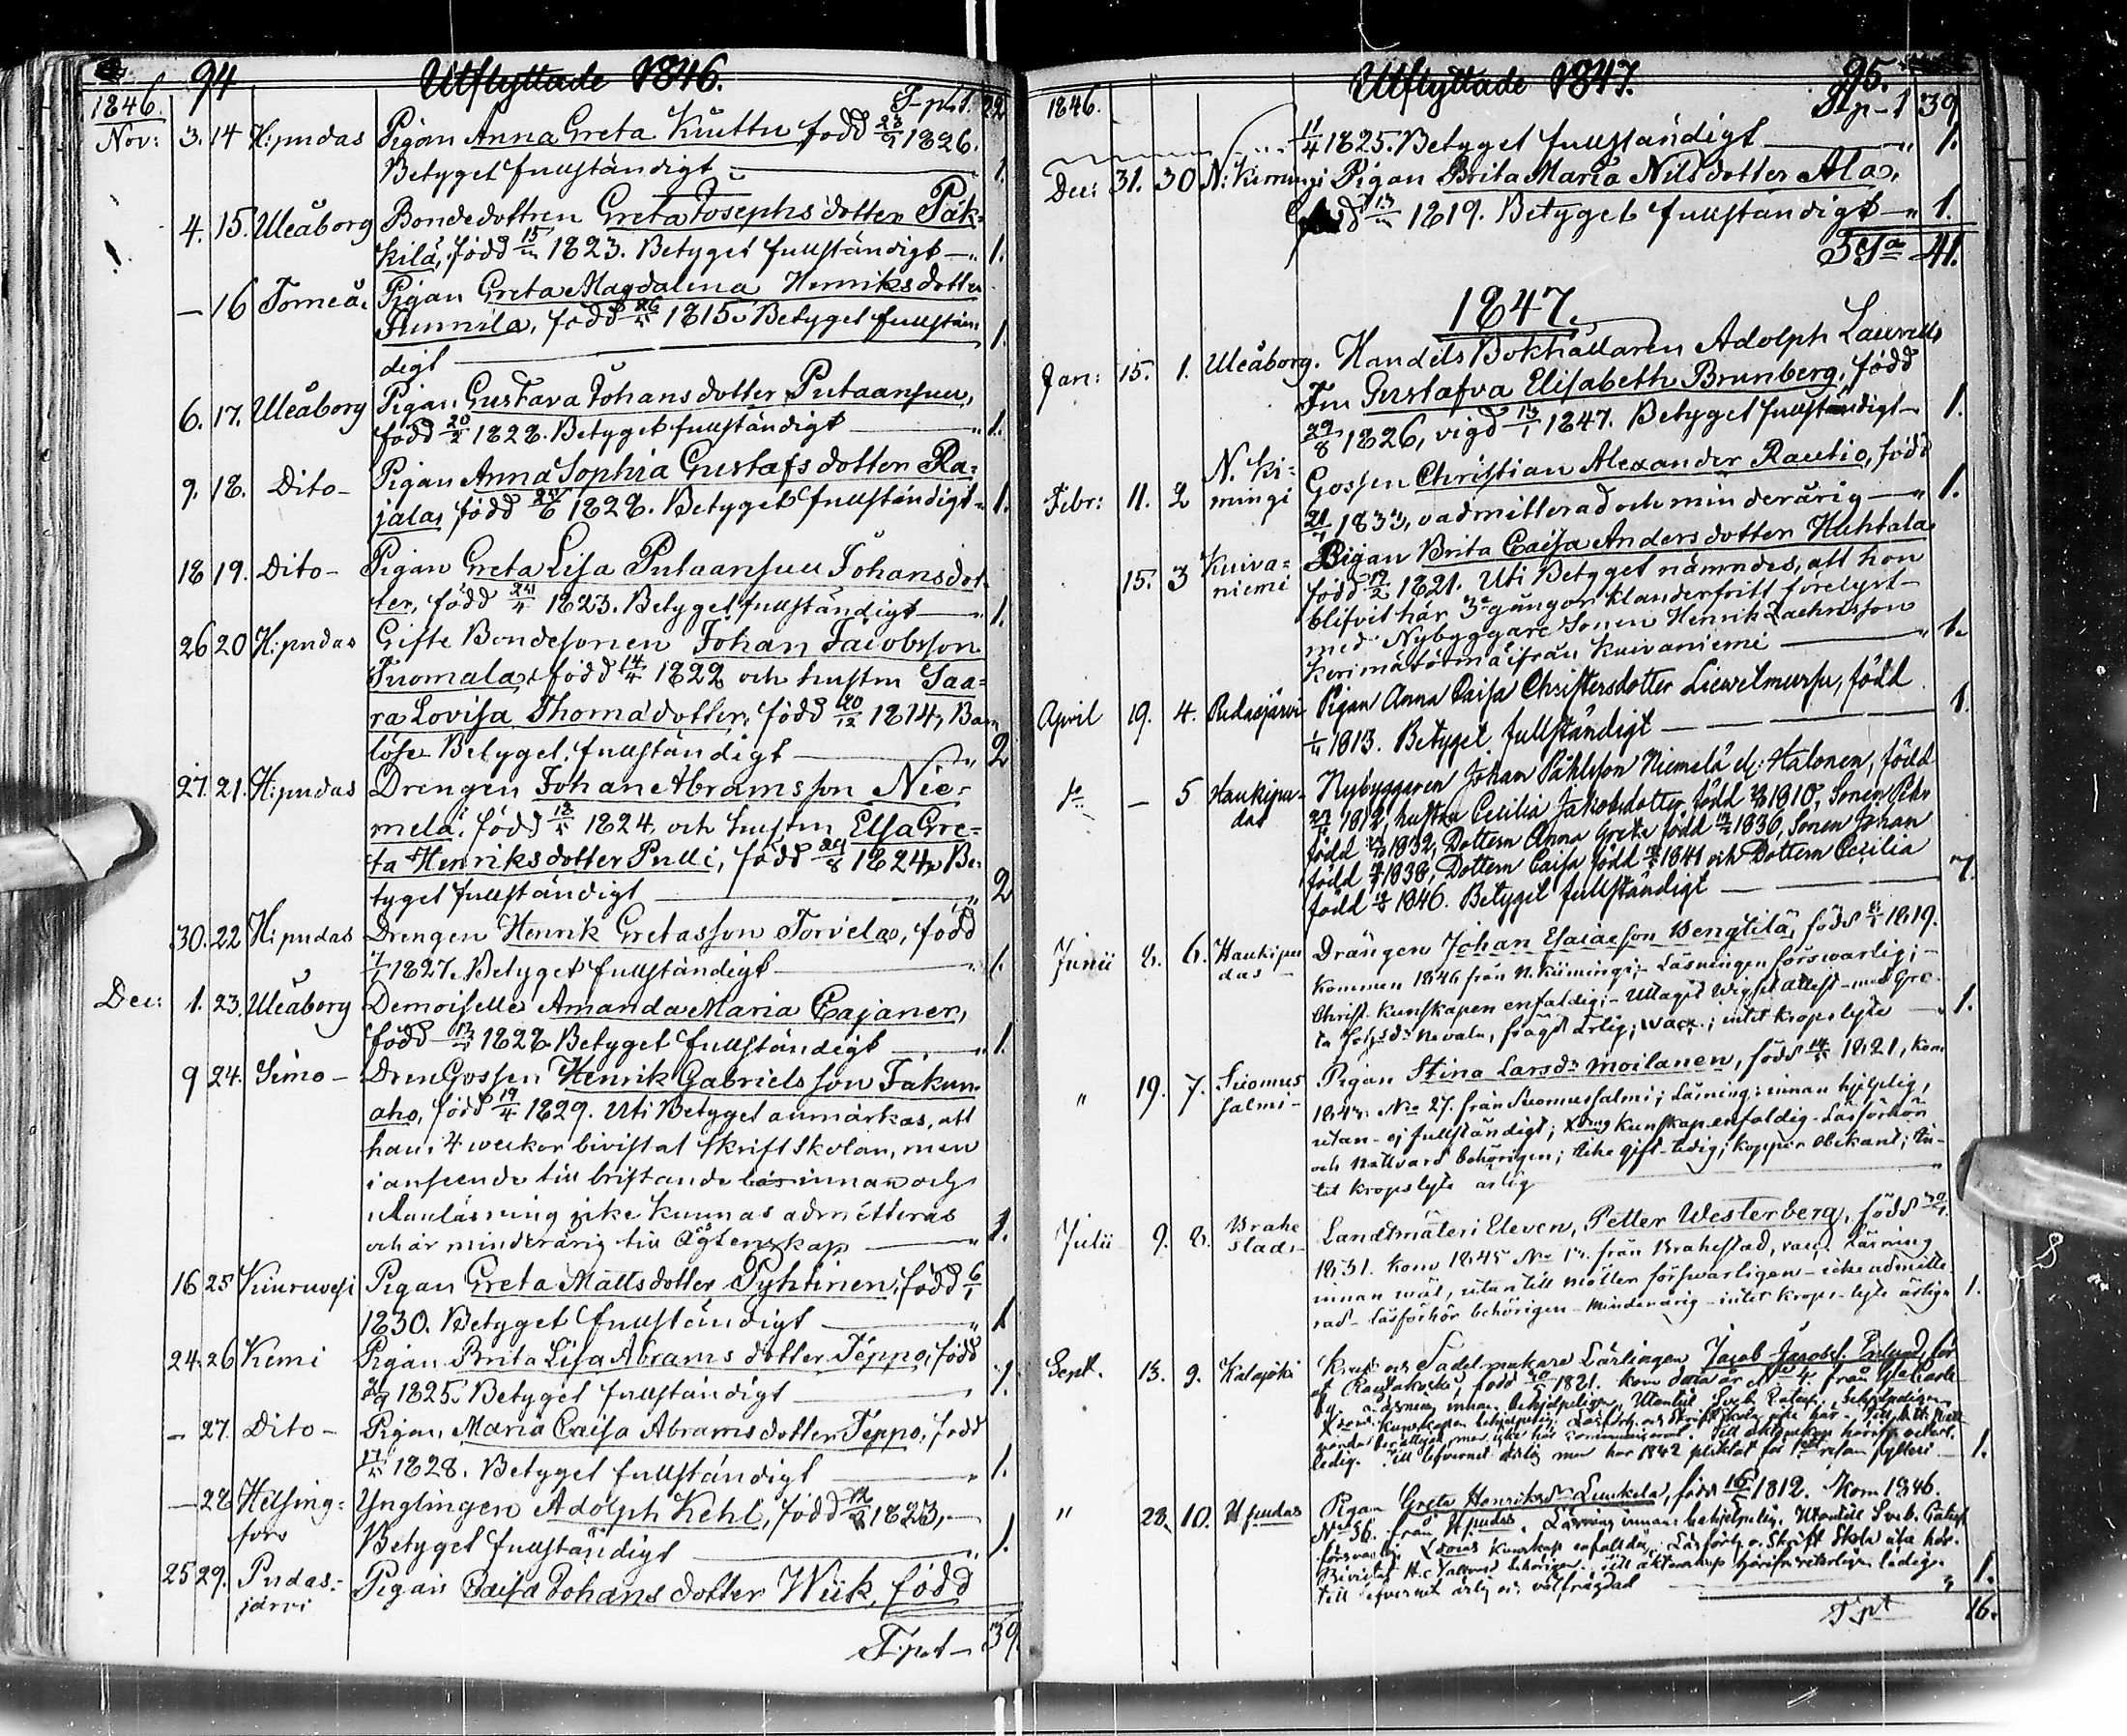 94 Utflyttade 1846.
1846. T-pt. 22
Nov: 3. 14 H:pudas Pigan Anna Greta Kuittu född 23/9 1826.
Betyget fullständigt — 1.
4. 15. Uleåborg Bondedottren Greta Josephsdotter Pák-
kilä, född 1823. Betyget fullständigt —„ 1.
— 16 Torneå. Pigan Greta Magdalena Henriksdotter
född 26/5 1815. Betyget fullstän-
digt — 1.
6. 17. Uleåborg Pigan Gustava Johansdotter Putaansuu,
född 20/2 1828. Betyget fullständigt —„ 1.
9. 18. Dito- Pigan Anna Sophia Gustafsdotter Ra-
jala, född 1828. Betyget fullständigt „ 1.
18 19. Dito- Pigan Greta Lisa Putaansuu Johansdot-
ter, född 24/4 1823. Betyget fullständigt —„ 1.
26 20 H:pudas Gifte Bondesonen Johan Jacobsson
Tuomala, född 14/4 1822 och hustrun Saa-
ra Lovisa Thomadotter, född 20/12 1814, Barn-
löse Betyget fullständigt —„ 2
27. 21. H:pudas Drengen Johan Abramsson Nie-
melä, född 1824, och hustrun Elsa Gre-
ta Henriksdotter Pulli, född 29/8 1824, Be-
tyget fullständigt —„ 2
30. 22 H:pudas Drengen Henrik Gretasson Torvela, född
1827. Betyget fullständigt —„ 1.
Dec: 1. 23. Uleåborg Demoiselle Amanda Maria Cajaner,
född 1828. Betyget fullständigt —„ 1.
9 24. Simo- DrenGossen Henrik Gabrielsson Jakun-
aho, född 19/4 1829. Uti Betyget anmärkas, att
han i 4 weckor bivistat Skriftskolan, men
i anseende till bristande läs innan och
utanläsning icke kunnas admitteras
och är minderårig till Ägtenskap —„ 1.
16 25 Kiuruvesi Pigan Greta Mattsdotter Pyhtinen, född 6/1
1830. Betyget fullständigt —„ 1
24. 26 Kemi Pigan Brita Lisa Abramsdotter Teppo, född
1825. Betyget fullständigt — 1.
— 27. Dito- Pigan Maria Caisa Abramsdotter Teppo, född
1828. Betyget fullständigt —„ 1.
— 28 Helsing- Ynglingen Adolph Kehl, född 1823,
fors Betyget fullständigt —„ 1.
25 29. Pudas- Pigan Caisa Johansdotter Wiik, född
järvi
T.pt — 39.
Utflyttade 1847. 95.
1846. Tp-t 39
11/4 1825. Betyget fullständigt —„ 1.
Dec: 31. 30 N: Kimingi Pigan Brita Maria Nilsdotter Ala,
född 1819. Betyget fullständigt —„ 1.
Sa 41.
1847.
Jan: 15. 1. Uleåborg. Handels Bokhållaren Adolph Laurells
Fru Gustafva Elisabeth Brunberg, född
29/8 1826, vigd 1847. Betyget fullständigt — 1.
Febr: 11. 2 N. Ki- Gossen Christian Alexander Rautio, född
mingi 1833, oadmitterad och minderårig —„ 1.
15. 3 Kuiva- Pigan Brita Caisa Andersdotter Huhtala
niemi född 12/2 1821. Uti Betyget nämndes, att hon
blifvit här 3ne gångor klanderfritt förelyst
med Nybyggare Sonen Henrik Zachrisson
ifrån Kuivaniemi —„ 1.
April 19. 4. Pudasjärvi Pigan Anna Caisa Christersdotter född
1813. Betyget fullständigt — 1.
do — 5 Haukipu- Nybyggaren Johan Påhlsson Niemelä el: Halonen, född
das 1812, hustru Cecilia Jakobsdotter född 1810, Sonen Pehr
född 1832, Dottern Anna Greta född 1836, Sonen Johan
född 1838, Dottern Caisa född 1841 och Dottern Cecilia
född 1846. Betyget fullständigt — 7.
Junii 8. 6. Haukipu Drängen Johan Esaiasson Wengtilä, född 1819.
das — kommen 1846 från N. Kiimingi; - Läsningen förswarlig; -
Christ. kunskapen enfaldig; - Uttagit Wigsel attest - med Gre-
ta frägd ärlig; vacc.; intet kropslyte —„ 1.
„ 19. 7. Suomus Pigan Stina Larsdr Moilanen, född 14/5 1821, kom
salmi- No 27. från Suomussalmi; Läsning: innan hjelplig,
utan- ej fullständigt; Xdoms kunskap enfaldig - Läsförhör
och Nattvard behörigen; Icke gift - ledig; koppor obekant; in-
tet kropslyte ärlig —„
Julii 9. 8. Brahe Landtmäteri Eleven, Petter Westerberg, född
stad- 1831. kom 1845 No från Brahestad, vacc. Läsning
innan wäl, utantill möller förswarligen - icke admitte-
rad - Läsförhör behörigen - Minderårig - intet krops-lyte ärlig „ 1.
Sept. 13. 9. Kalajoki Sadelmakare Lärlingen Jacob
född 1821.
1.
„ 28. 10. H:pudas Pigan Greta Henriksdr Luukela, född 1812. Kom 1846.
No 36. från H:pudas. Läsning innan: behjelpelig. Utantill
kunskap enfaldig. Läsförh. o. Skrift Skola
ledig.
Till lefvernet ärlig och välfrägdad „ 1.
Tpt 16.